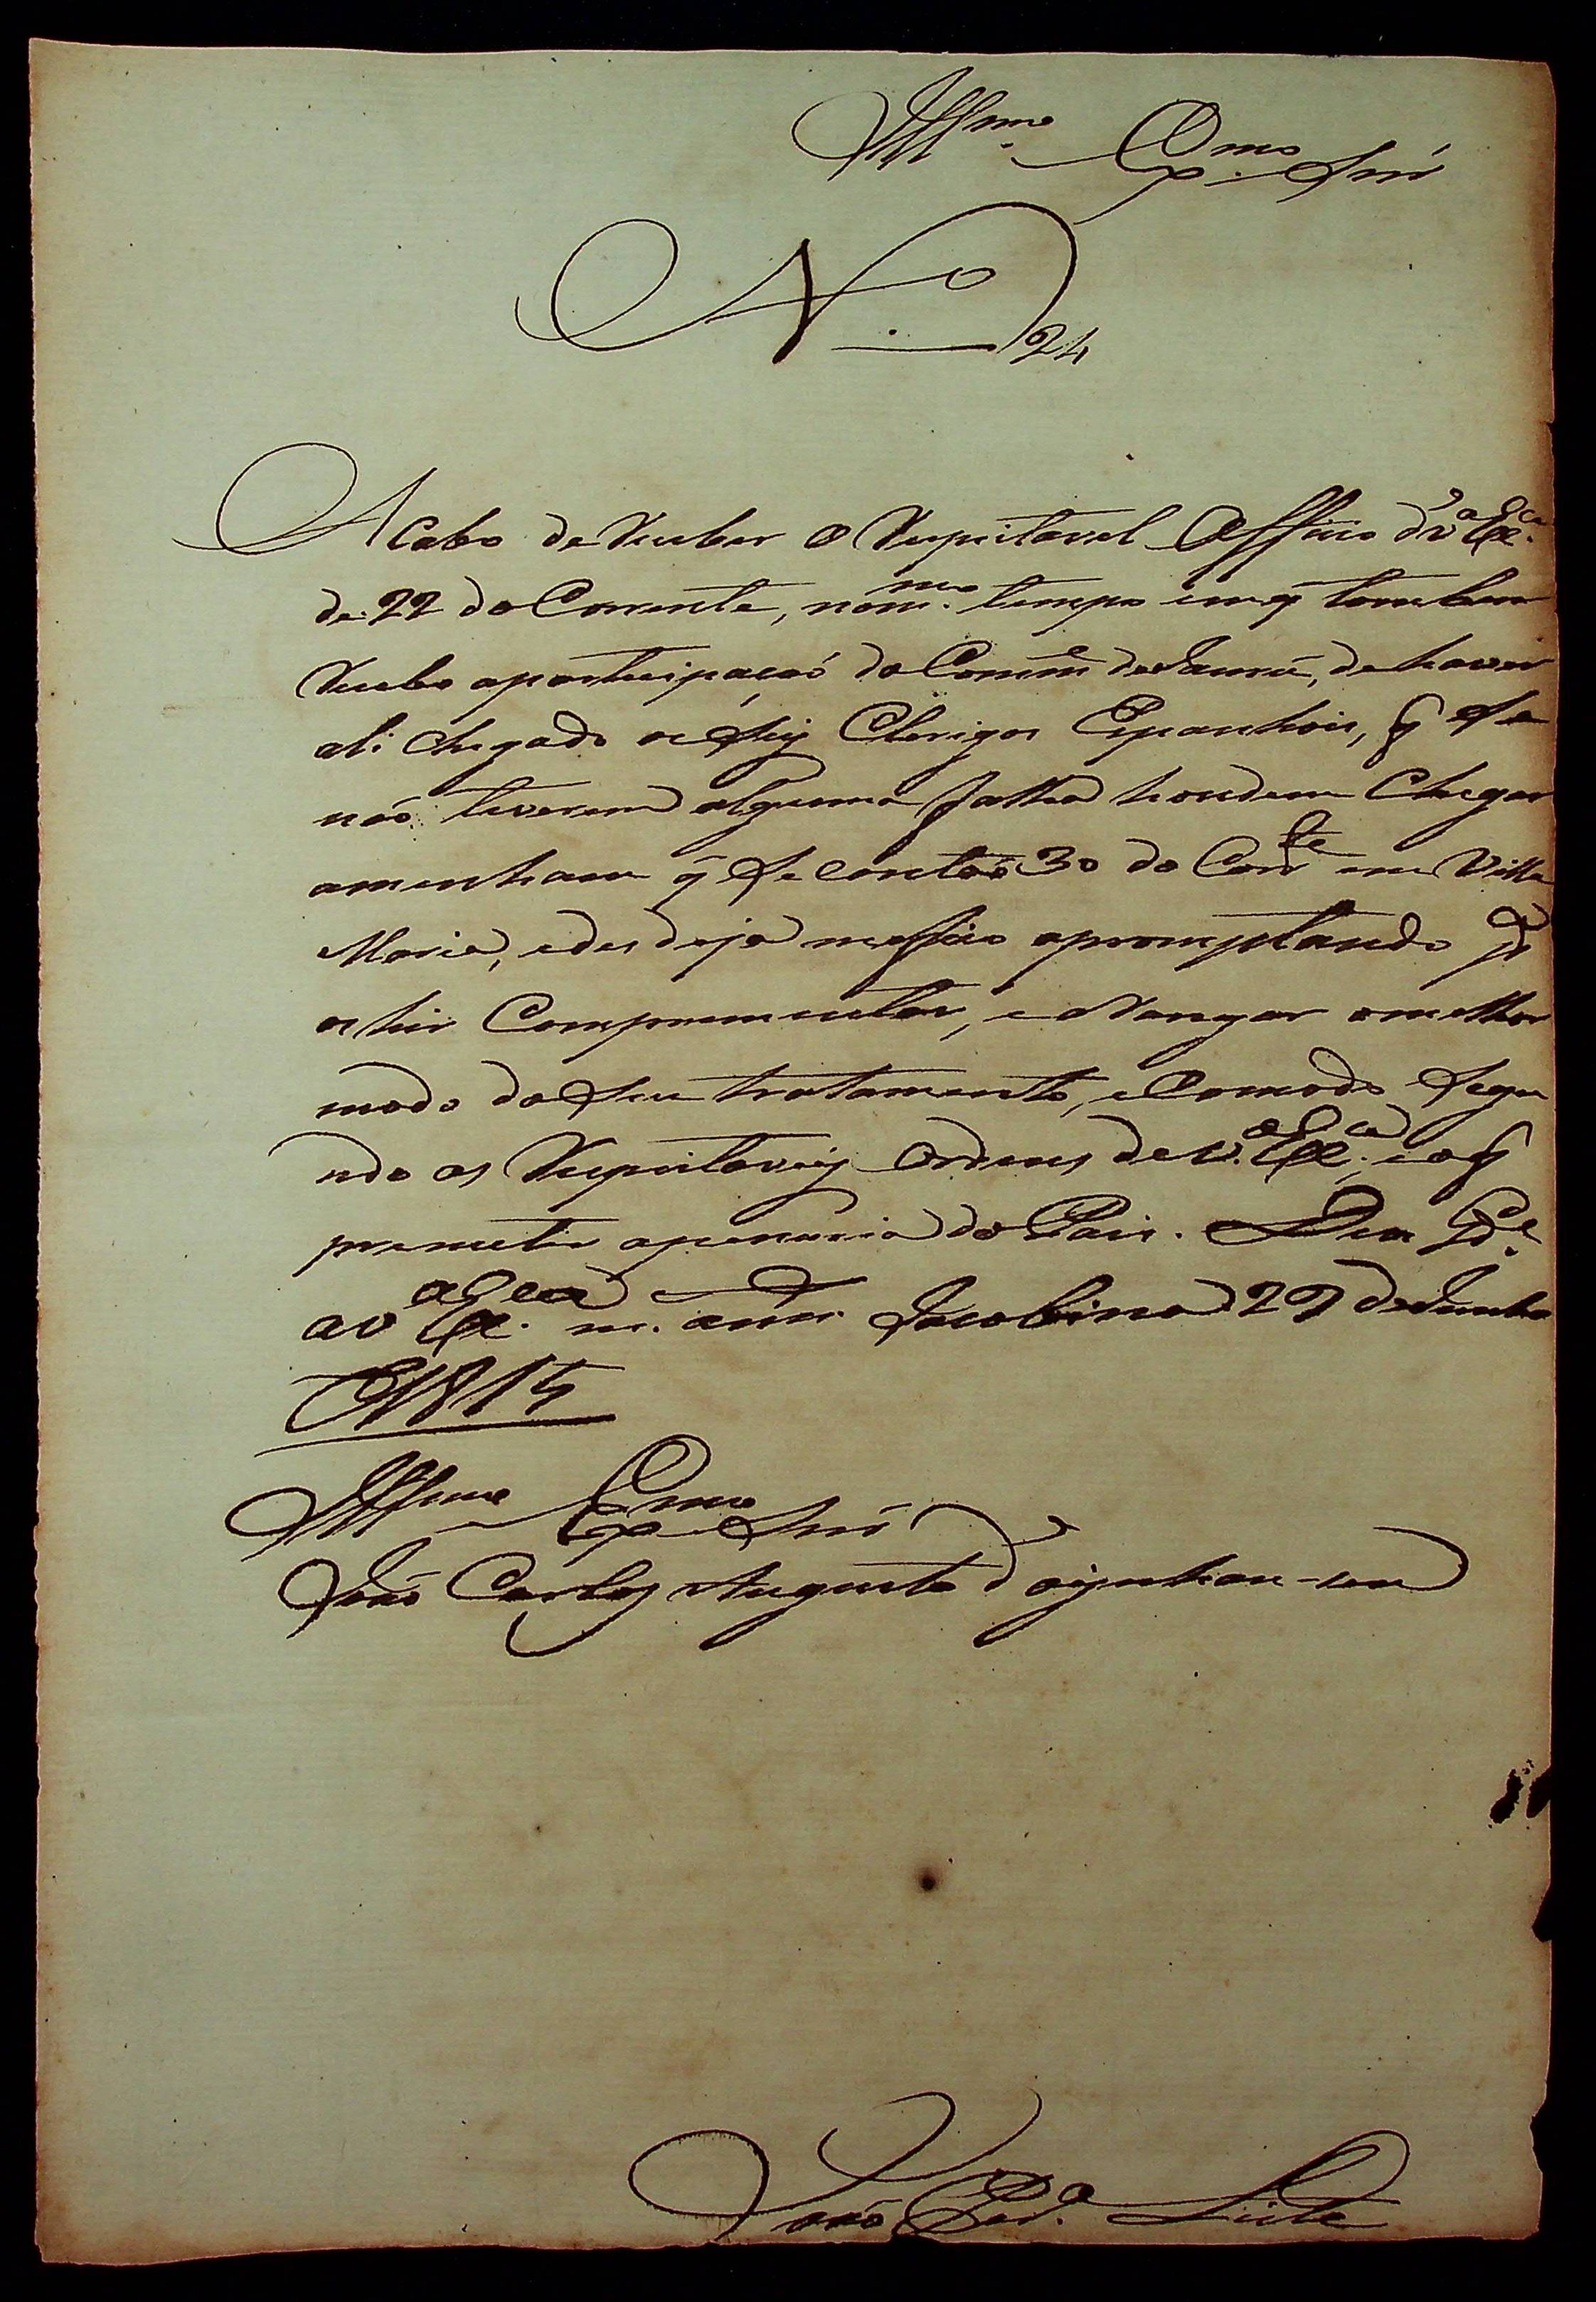 Illmo. Exmo. Snr̃
No. 24
A Cabo de Receber o Respeitavel Officio d'v.a Exca.
de 22 do Corrente, nom.mo tempo em q̃ tambem
Recebo aparticipaçaõ do Comm.e de Jaurú, de haver
ali chegado os seis Clerigos Espanhois, q̃ se
naõ tiverem alguma falha handem Chegar
amenham q̃ se contaõ 30 do Corr.te em Villa
Maria, e des de ja me fico apromptando p.a
os hir Comprementar, e Arranjar o melhor
modo do seu tratamento, e Comodo Segu
ndo as Respeitaveis Ordens de V.a Exca. e o q̃
premetir a penuria do Pais. Deos G.de
a V.a Exca. m. ann.s Jacobina 29 de Junho
de 1815
Illmo Exmo Snr̃
Joaõ Carlos Augusto d'oijnhau-sen
Joaõ Per.a Leite